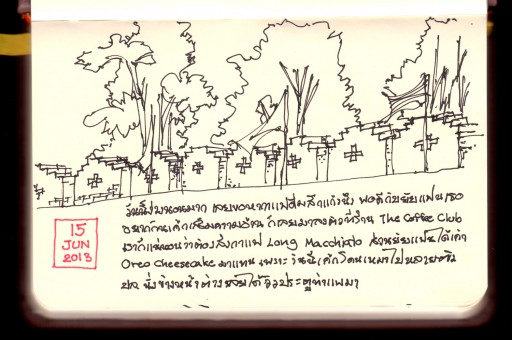 วันนี้ง่วงนอนมาก เลยขอหากาแฟดื่มสักแก้วนึง พอดีกับยัยแฟนเธอ
อยากทานเค้กเสริมความอ้วน ก็เลยมาลงตัวที่ร้าน The Coffee Club
เราก็แน่นอนว่าต้องสั่งกาแฟ Long Macchiato ส่วนยัยแฟนได้เค้ก
Oreo Cheesecake มาแทน เพราะวันนี้เค้กโดนเหมาไปหลาย
นั่งข้างหน้าต่างเลยได้วิวประตูท่าแพมา
15
JUN
2013